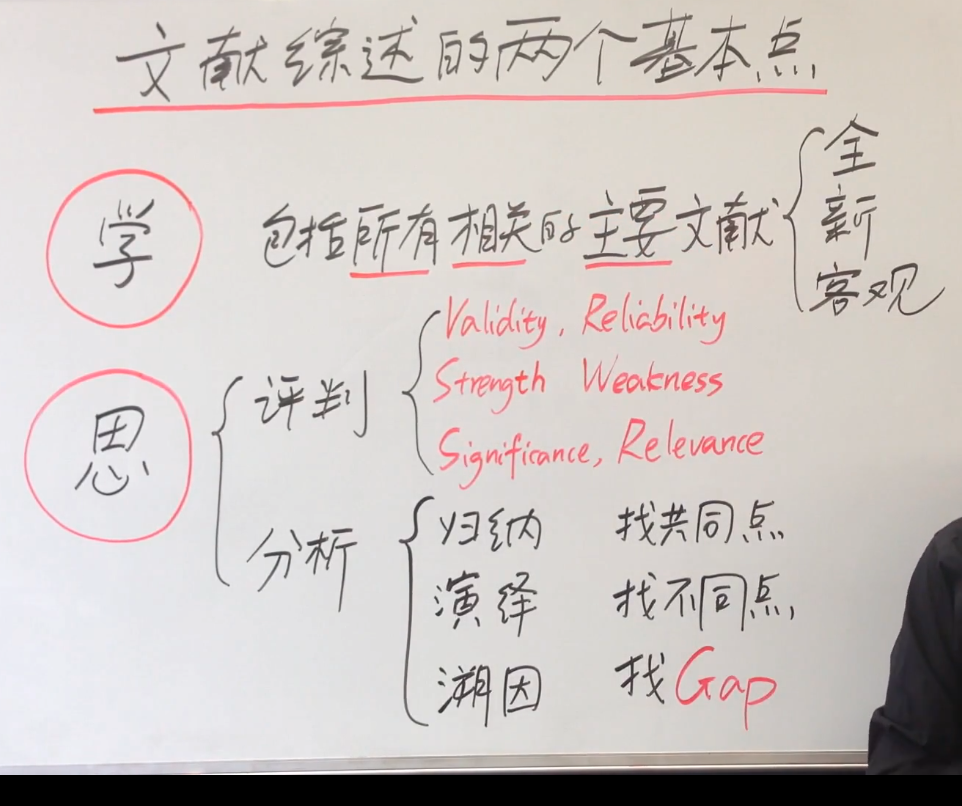 文献综述的两个基本点
学 包括所有相关的主要文献
全
新
客观
思
评判
Validity, Reliability
Strength Weakness
Significance, Relevance
分析
归纳 找共同点
演绎 找不同点
溯因 找Gap